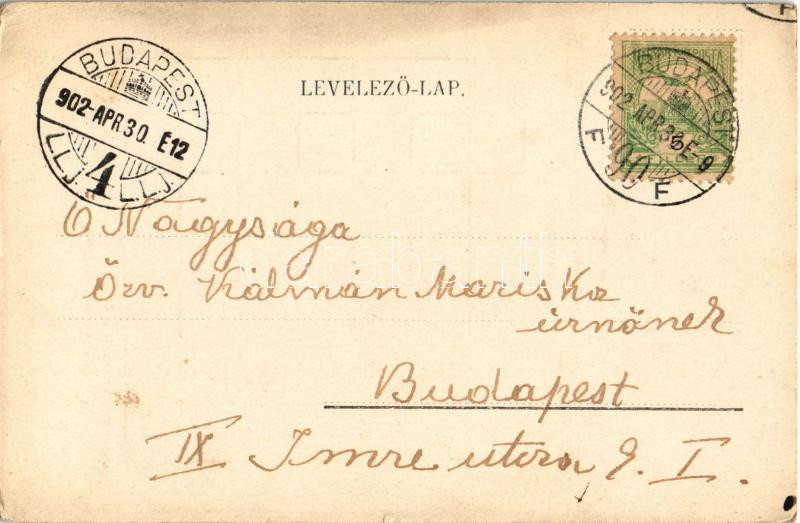 BUDAPEST
902-APR.30. E12
L.L.J. 4 L.L.J.
LEVELEZŐ-LAP.
BUDAPEST
902-APR.30. E-9
F 90 F
Ő Nagysága
Özv. Kálmán Mariska
úrnőnek
Budapest
IX Imre utca 9. I.
darabanth